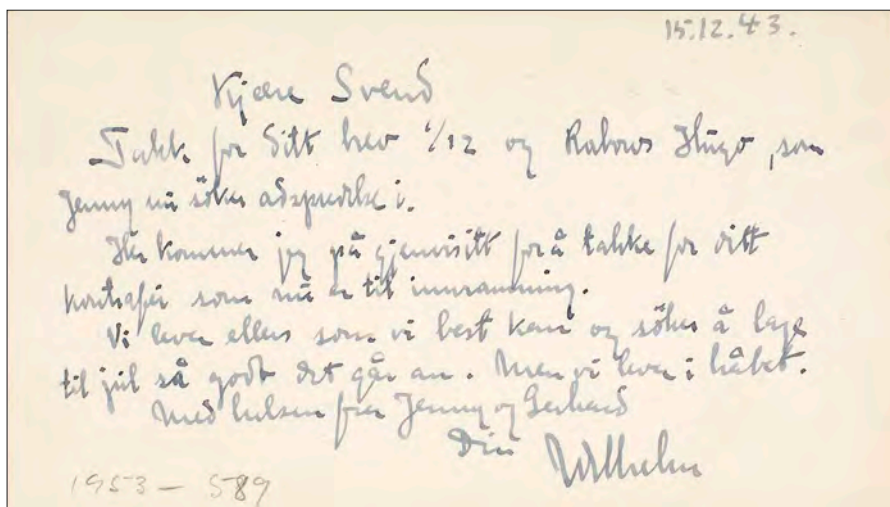 15.12.43.
Kjære Svend
Takk for ditt brev 1/12 og Rabows Hugo, som
Jenny nu söker adspredelse i.
Her kommer jeg på gjenvisitt for å takke for ditt
kontrafei som nu er til innramning.
Vi lever ellers som vi best kan og söker å lage
til jul så godt det går an. Men vi lever i håbet.
Med hilsen fra Jenny og Gerhard
Din Wilhelm
1953 – 589